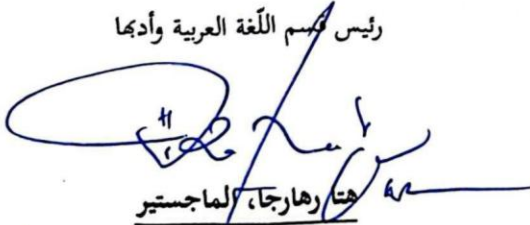 رئيس قسم اللّغة العربية وأدبها
هتا رهارجا، الماجستير